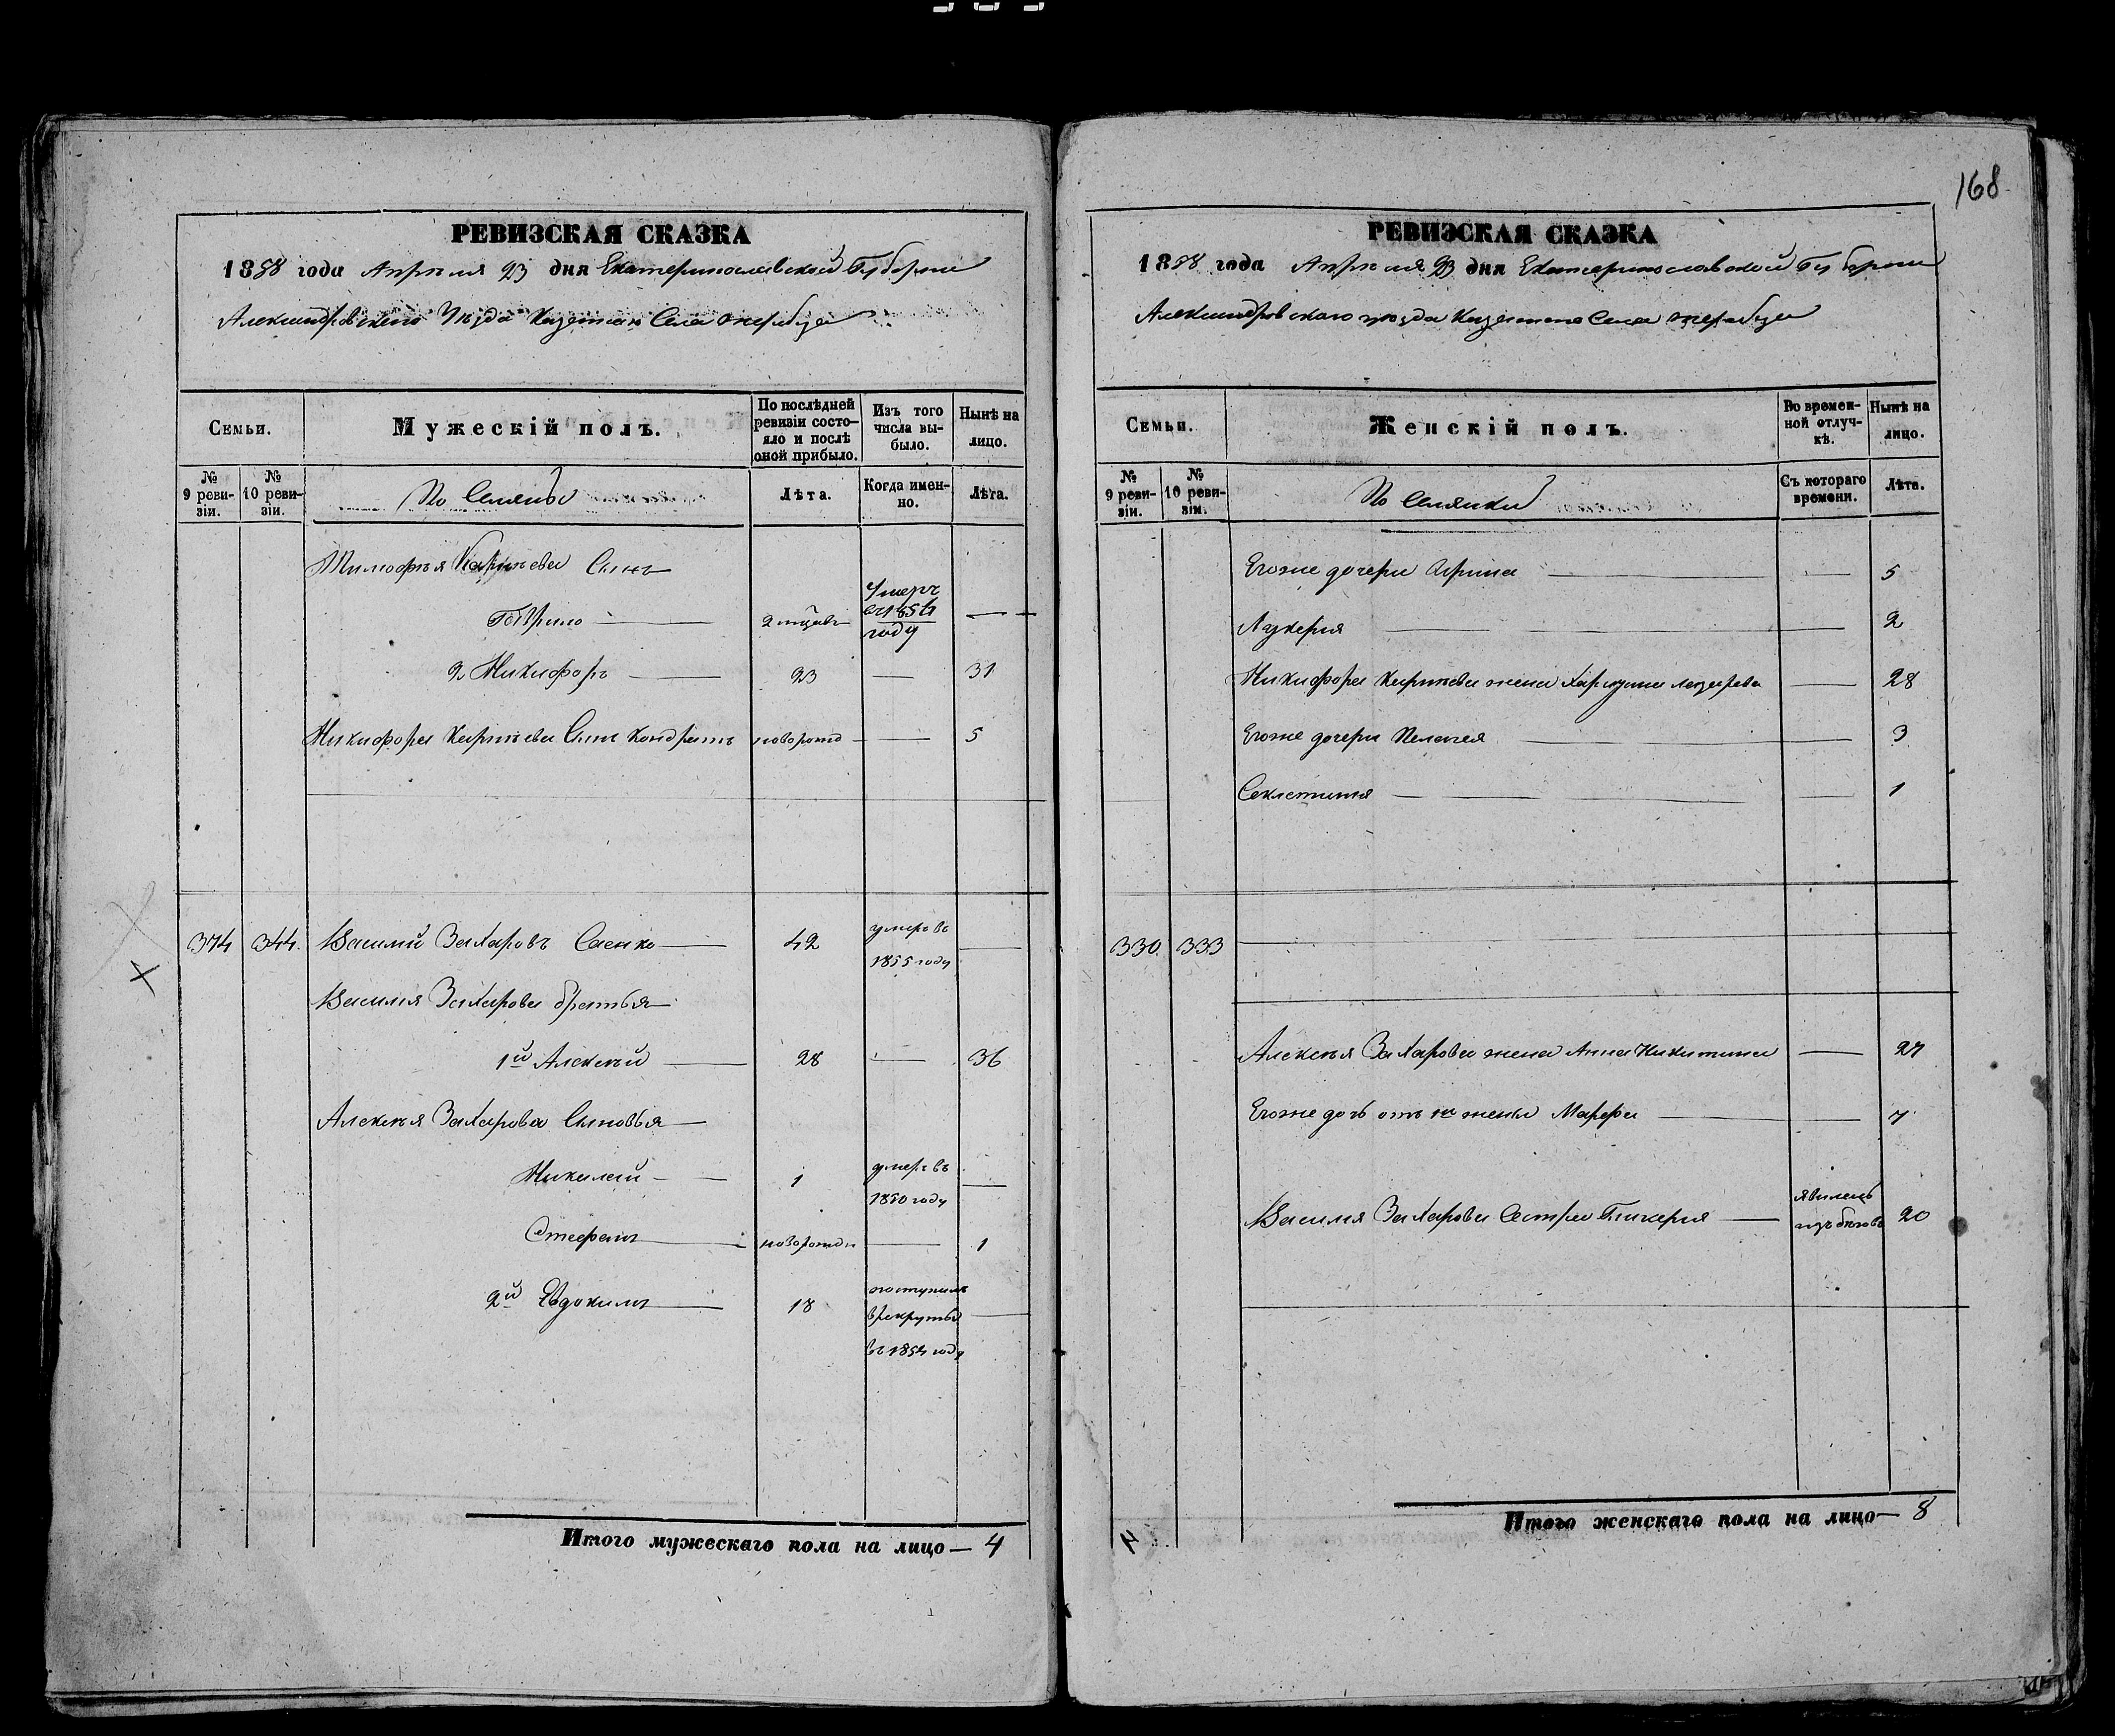 168
РЕВИЗСКАЯ СКАЗКА
1858 года Апреля 23 дня Екатеринославской Губернии
Александровского Уезда Казенного Села
Семьи.
Мужескій полъ.
По послѣдней ревизіи состояло и послѣ оной прибыло.
Изъ того числа выбыло.
Нынѣ на лицо.
№ 9 ревизіи.
№ 10 ревизіи.
Поселяны
Лѣта.
Когда именно.
Лѣта.
Тимофея Сынъ
Гаврило — умеръ —
году
2 Никифоръ — 23 — 31
Никифора Кирѣева Сынъ Кондратъ новорожд — 5
374 344. Василий Захаровъ Саенко — 42 умеръ въ —
1855 году
Василия Захарова братья —
1й Алексѣй — 28 — 36
Алексѣя Захарова Сыновья —
Николай — 1 умеръ въ —
1850 году
Стефанъ — новорожден — 1
2й Евдокимъ — 18 поступилъ —
в рекруты
въ 1854 году
Итого мужескаго пола на лицо — 4
РЕВИЗСКАЯ СКАЗКА
1858 года Апреля 23 дня Екатеринославской Губернии
Александровского уезда Казенного Села
Семьи.
Женскій полъ.
Во временной отлучкѣ.
Нынѣ на лицо.
№ 9 ревизіи.
№ 10 ревизіи.
Поселянки
Съ котораго времени.
Лѣта.
Егоже дочери Ирина — 5
Лукерия — 2
Никифора Кирѣева жена Лазарева — 28
Егоже дочери Пелагея — 3
Секлетиния — 1
330. 333 —
Алексѣя Захарова жена Анна Никитина — 27
Егоже дочь отъ жены Марфа — 7
Василия Захарова Сестра Гликерия — явилась
изъ бѣговъ 20
Итого женскаго пола на лицо — 8